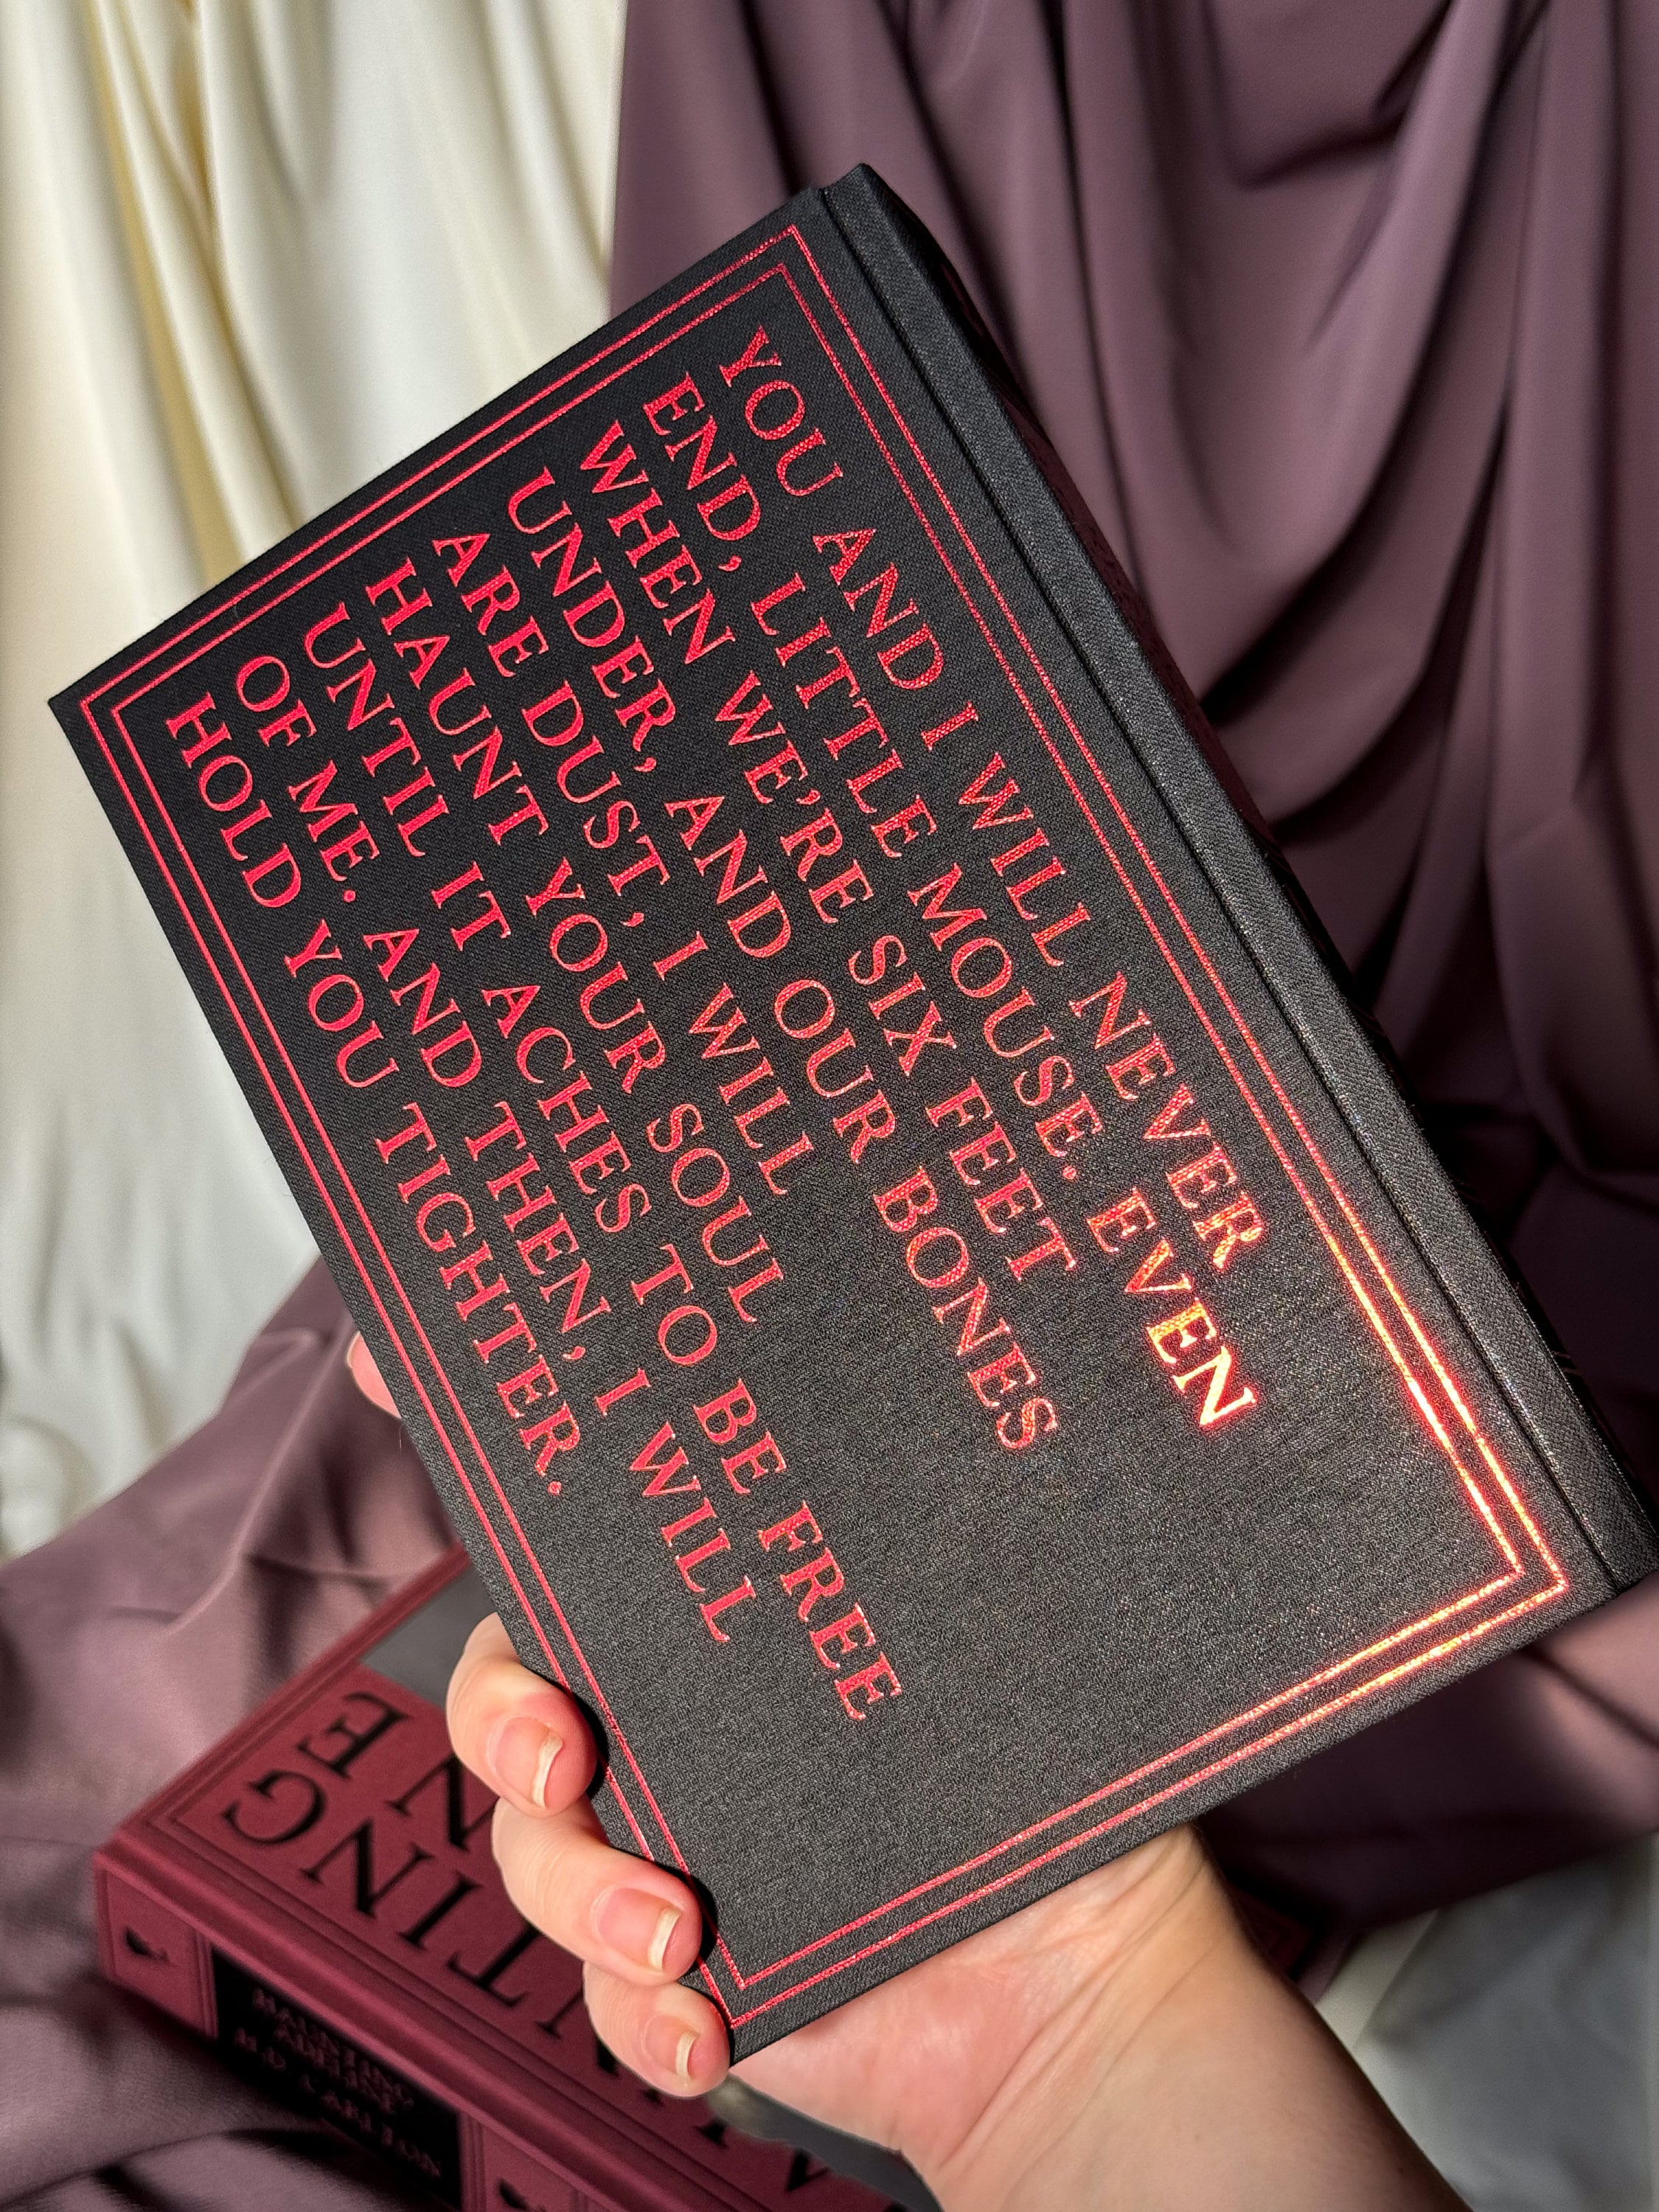 YOU AND I WILL NEVER
END, LITTLE MOUSE. EVEN
WHEN WE'RE SIX FEET
UNDER, AND OUR BONES
ARE DUST, I WILL
HAUNT YOUR SOUL
UNTIL IT ACHES TO BE FREE
OF ME. AND THEN, I WILL
HOLD YOU TIGHTER.
HAUNTING
ADELINE
H.D. CARLTON